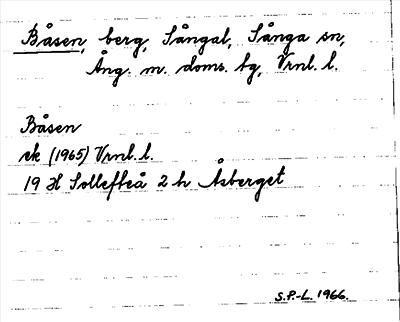 Båsen, berg, Sångal, Sånga sn,
Ång. m. doms. bg, Vrnl. l.
Båsen
ek (1965) Vrnl. l.
19 H Sollefteå 2 h Åsberget
S.P.-L. 1966.